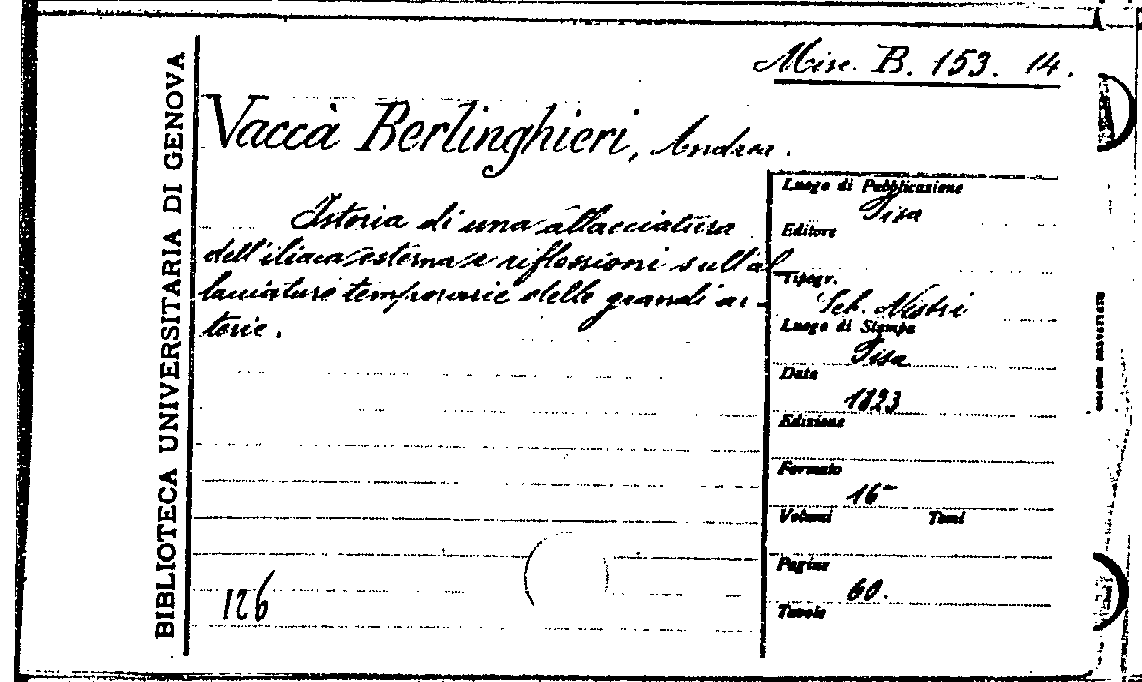 BIBLIOTECA UNIVERSITARIA DI GENOVA
Misc. B. 153. 14.
Vaccà Berlinghieri, Andrea.
Istoria di una allacciatura
dell'iliaca esterna e riflessioni sull'al
lacciature temporarie delle grandi ar-
terie.
126
Luogo di Pubblicazione
Pisa
Editore
Tipogr.
Seb. Nistri
Luogo di Stampa
Pisa
Data
1823
Edizione
Formato
16-
Volumi Tomi
Pagine
60.
Tavole